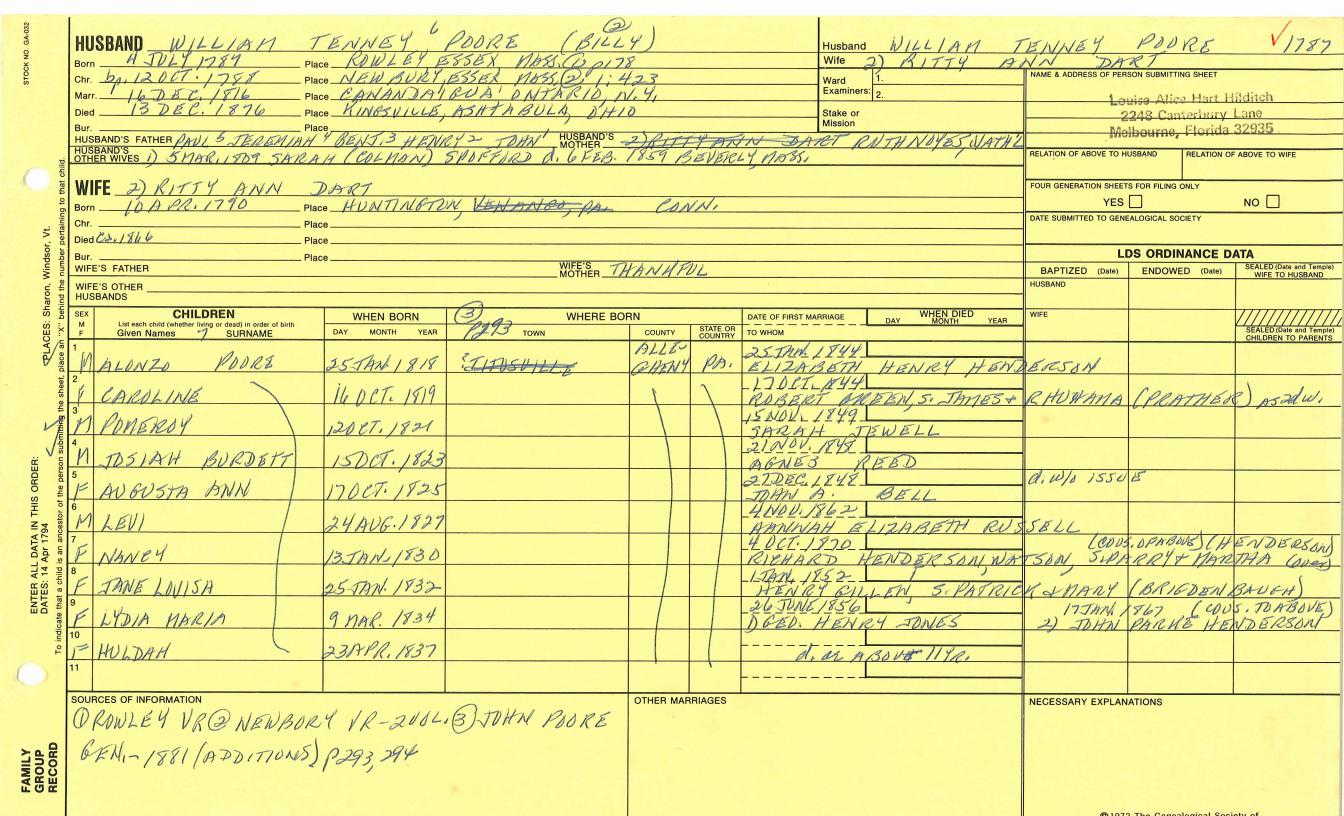 STOCK NO. GA-032
HUSBAND WILLIAM TENNEY 6 POORE (BILLY) ②
Born 4 JULY 1787 Place ROWLEY ESSEX MASS. ① p178
Chr. bp. 12 OCT. 1788 Place NEWBURY, ESSEX MASS. ② 1: 423
Marr. 16 DEC. 1816 Place CANANDAIGUA ONTARIO, N.Y.
Died 13 DEC. 1876 Place KINGSVILLE, ASHTABULA, OHIO
Bur. Place
HUSBAND'S FATHER PAUL 5 JEREMIAH 4 BENJ. 3 HENRY 2 JOHN 1 HUSBAND'S MOTHER 2) RITTY ANN DART RUTH NOYES, NATHL
HUSBAND'S OTHER WIVES 1) 5 MAR. 1809 SARAH (COLMAN) SPOFFORD d. 6 FEB. 1859 BEVERLY MASS.
Husband WILLIAM TENNEY POORE ✓ 1787
Wife 2) RITTY ANN DART
Ward Examiners: 1.
2.
Stake or Mission
NAME & ADDRESS OF PERSON SUBMITTING SHEET
Louise Alice Hart Hilditch
2248 Canterbury Lane
Melbourne, Florida 32935
RELATION OF ABOVE TO HUSBAND RELATION OF ABOVE TO WIFE
FOUR GENERATION SHEETS FOR FILING ONLY
YES NO
DATE SUBMITTED TO GENEALOGICAL SOCIETY
WIFE 2) RITTY ANN DART
Born 10 APR. 1790 Place HUNTINGTON, VENANGO, PA. CONN.
Chr. Place
Died Ca. 1866 Place
Bur. Place
WIFE'S FATHER WIFE'S MOTHER THANKFUL
WIFE'S OTHER HUSBANDS
LDS ORDINANCE DATA
BAPTIZED (Date) ENDOWED (Date) SEALED (Date and Temple) WIFE TO HUSBAND
HUSBAND
WIFE
SEALED (Date and Temple) CHILDREN TO PARENTS
SEX M F CHILDREN List each child (whether living or dead) in order of birth Given Names 7 SURNAME
WHEN BORN DAY MONTH YEAR
③ p293 WHERE BORN TOWN COUNTY STATE OR COUNTRY
DATE OF FIRST MARRIAGE TO WHOM
WHEN DIED DAY MONTH YEAR
1 M ALONZO POORE 25 JAN. 1818 TITUSVILLE ALLEGHENY PA. 25 JAN. 1844 ELIZABETH HENRY HENDERSON
2 F CAROLINE 16 OCT. 1819 17 OCT. 1844 ROBERT GREEN, S. JAMES & RHUHAMA (PRATHER) as 2d w.
3 M POMEROY 12 OCT. 1821 15 NOV. 1849 SARAH JEWELL
4 M JOSIAH BURDETT 15 OCT. 1823 21 NOV. 1848 AGNES REED
5 F AUGUSTA ANN 17 OCT. 1825 27 DEC. 1848 JOHN A. BELL d. w/o ISSUE
6 M LEVI 24 AUG. 1827 4 NOV. 1862 HANNAH ELIZABETH RUSSELL
7 F NANCY 13 JAN. 1830 4 OCT. 1870 RICHARD HENDERSON, WATSON, S. PARRY & MARTHA (COUS. OF ABOVE) (HENDERSON) (over)
8 F JANE LOUISA 25 JAN. 1832 1 JAN. 1852 HENRY GILLEN, S. PATRICK & MARY (BRIGDENBAUGH)
9 F LYDIA MARIA 9 MAR. 1834 26 JUNE 1856 DGED. HENRY JONES 17 JAN. 1867 (COUS. TO ABOVE) 2) JOHN PARKE HENDERSON
10 F HULDAH 23 APR. 1837 d. ae ABOUT 11 yr.
11
SOURCES OF INFORMATION
① ROWLEY VR ② NEWBURY VR - 2 VOL. ③ JOHN POORE
GEN. - 1881 (ADDITIONS) p293, 294
OTHER MARRIAGES
NECESSARY EXPLANATIONS
ENTER ALL DATA IN THIS ORDER:
DATES: 14 Apr 1794
PLACES: Sharon, Windsor, Vt.
To indicate that a child is an ancestor of the person submitting the sheet, place an "X" behind the number pertaining to that child.
FAMILY GROUP RECORD
©1972 The Genealogical Society of